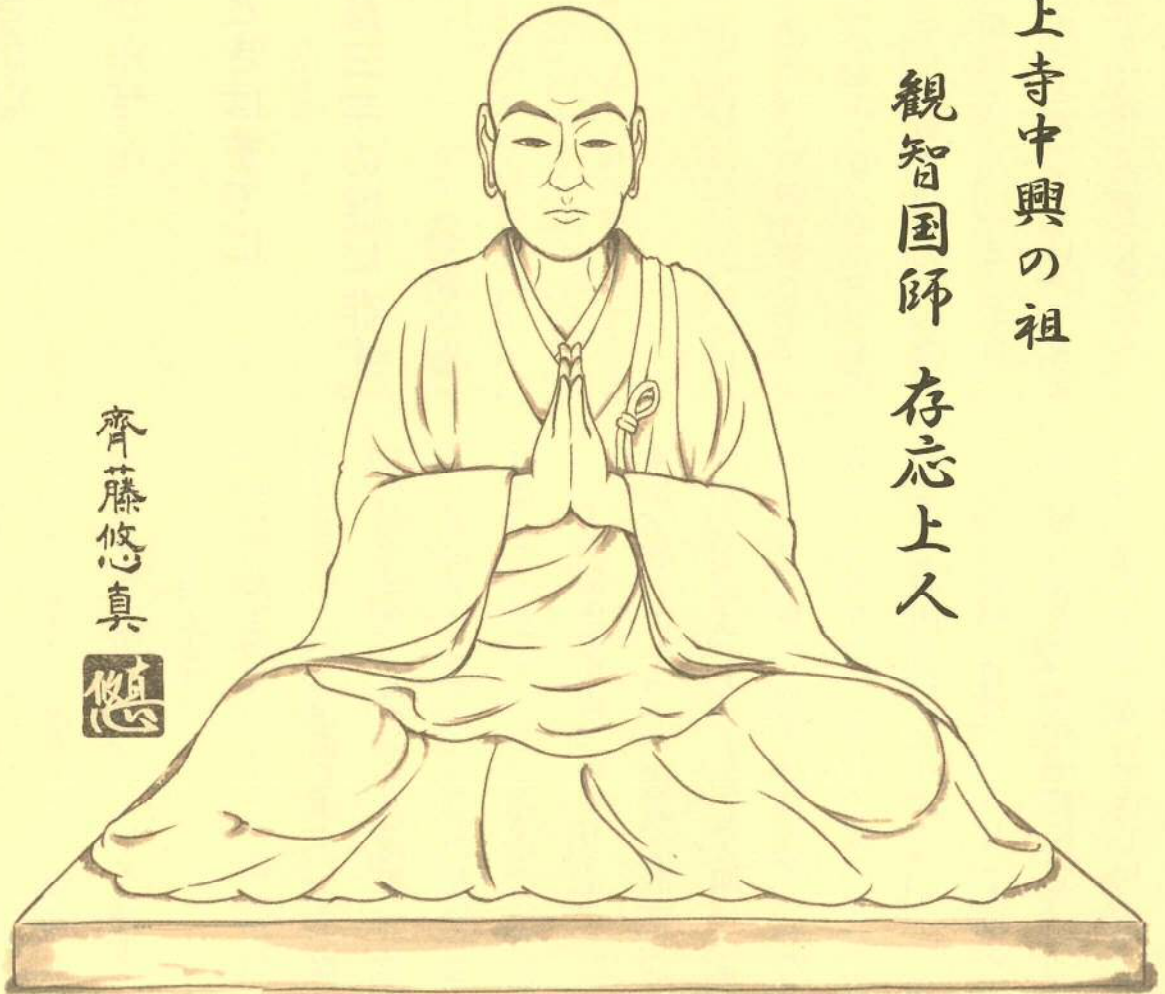 上寺中興の祖
観智国師 存応上人
齊藤悠真
悠真